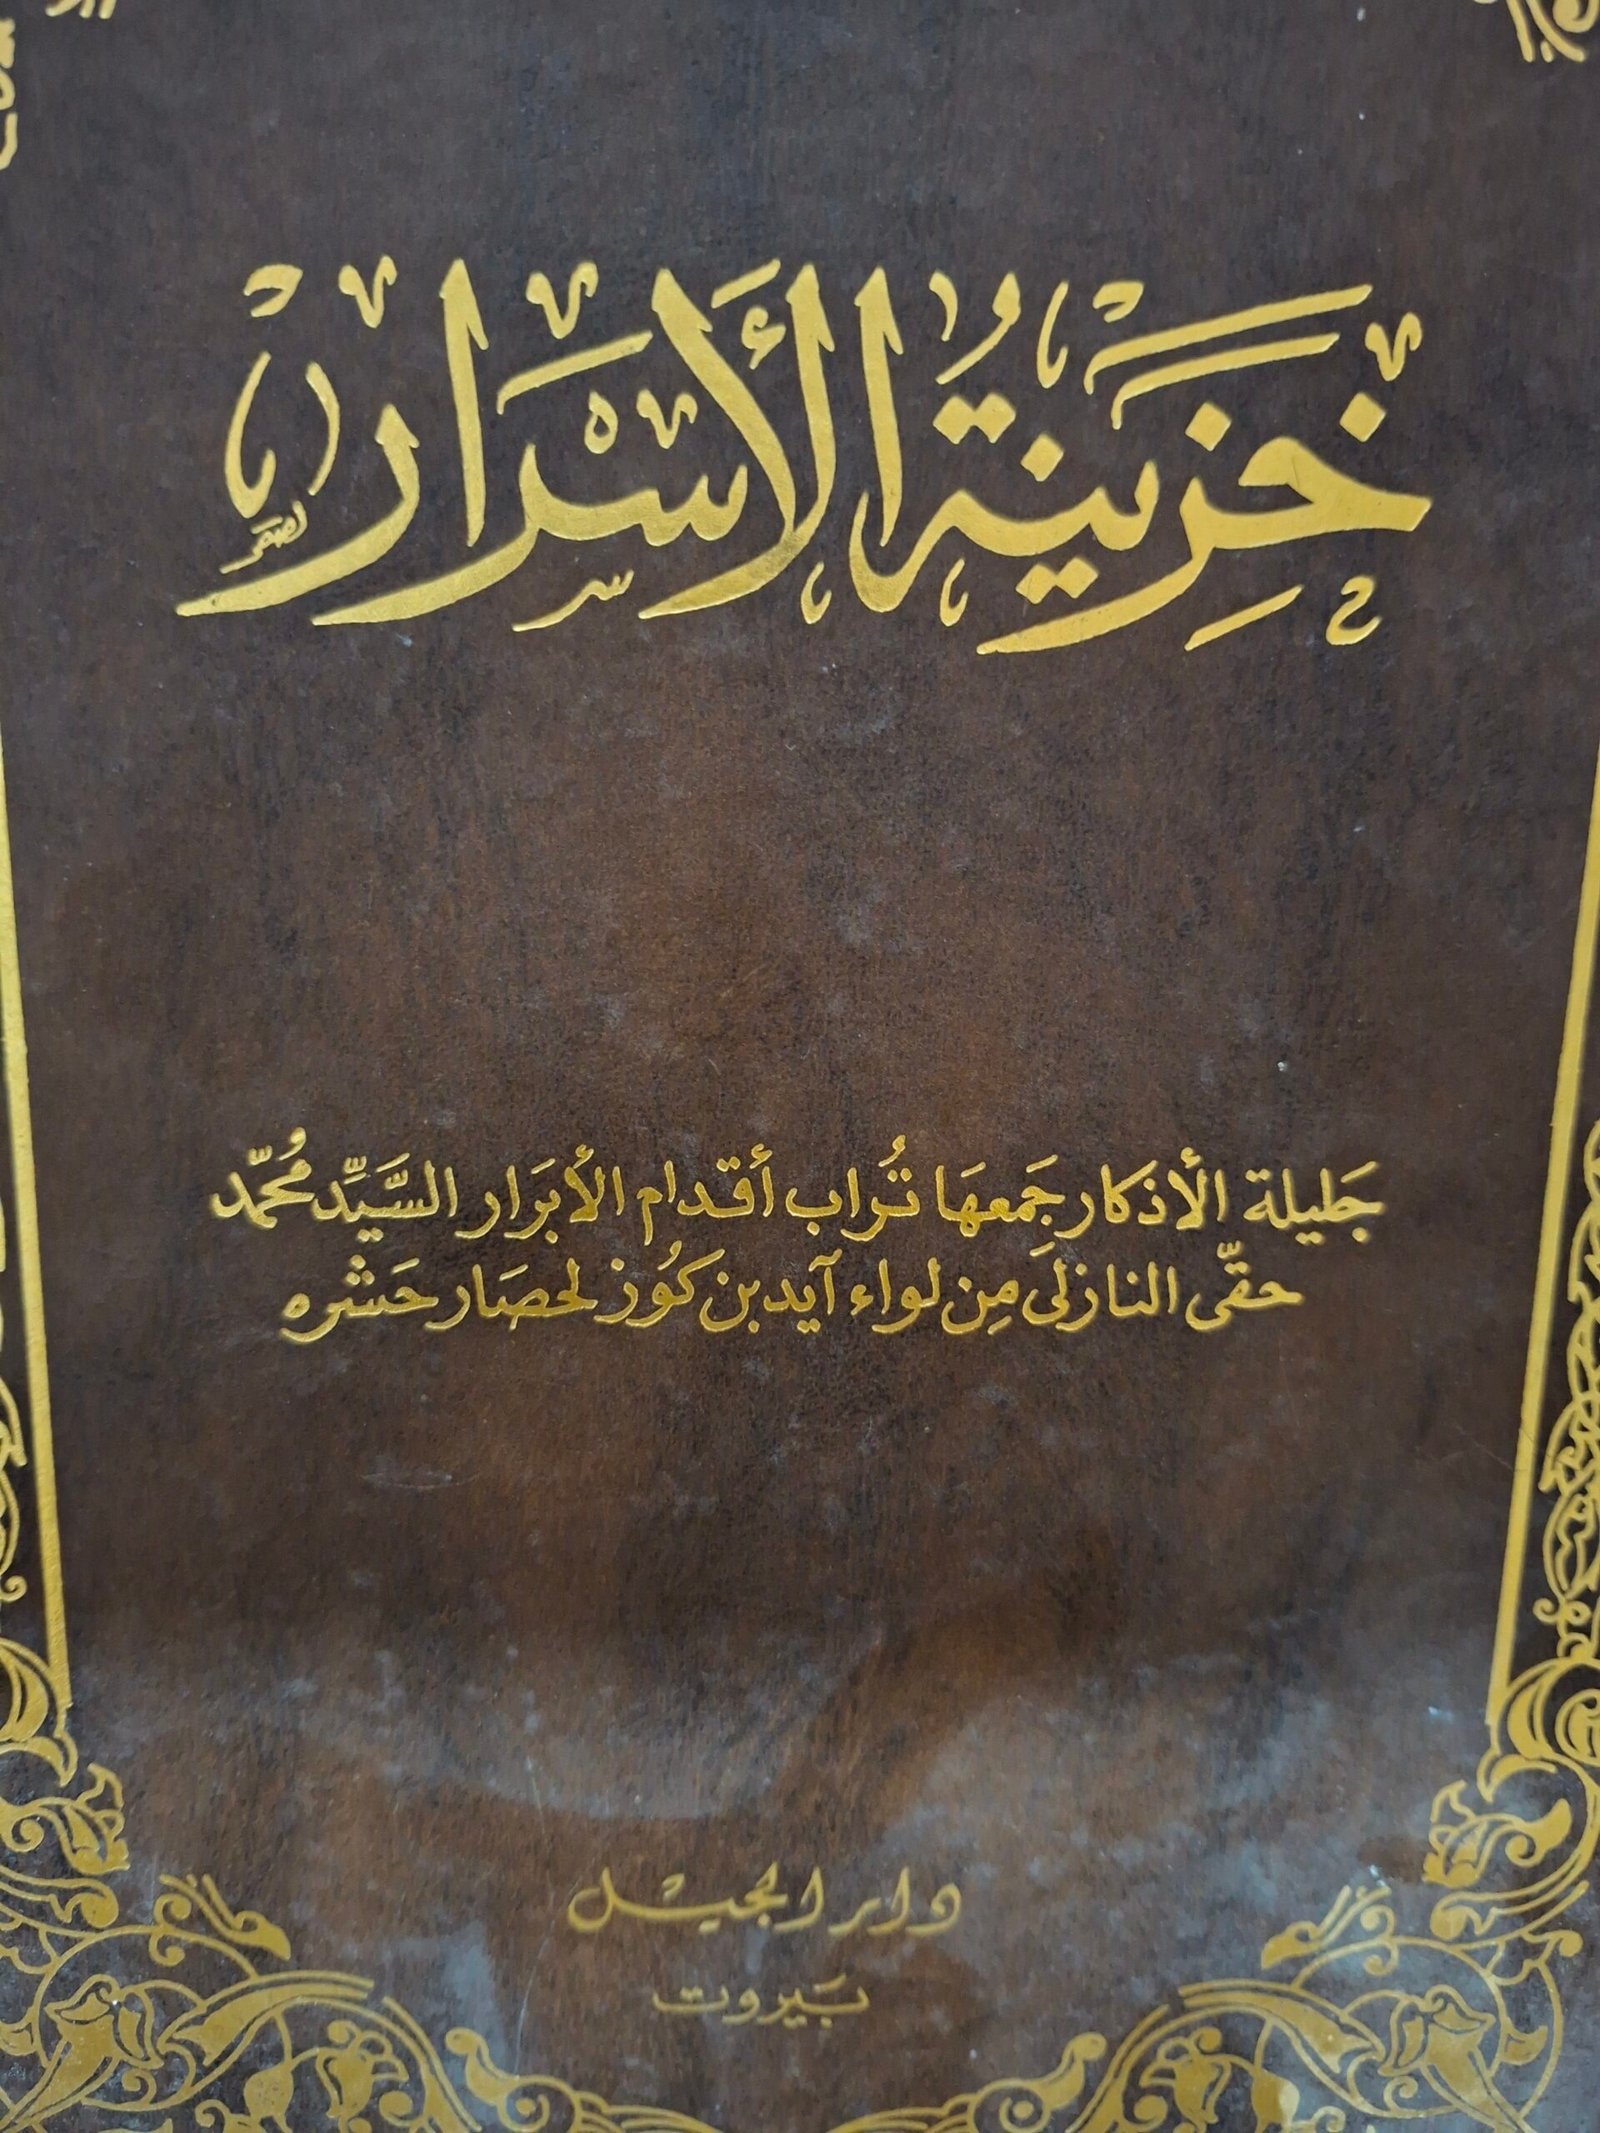 خَزِينَةُ الأَسْرَار
جَليلة الأذكار جَمعهَا تُراب أقدام الأبرَار السَّيِّد مُحمّد
حقّى النازلى مِن لواء آيدبن كُوز لحصَار حَشره
دار الجيل
بَيروت